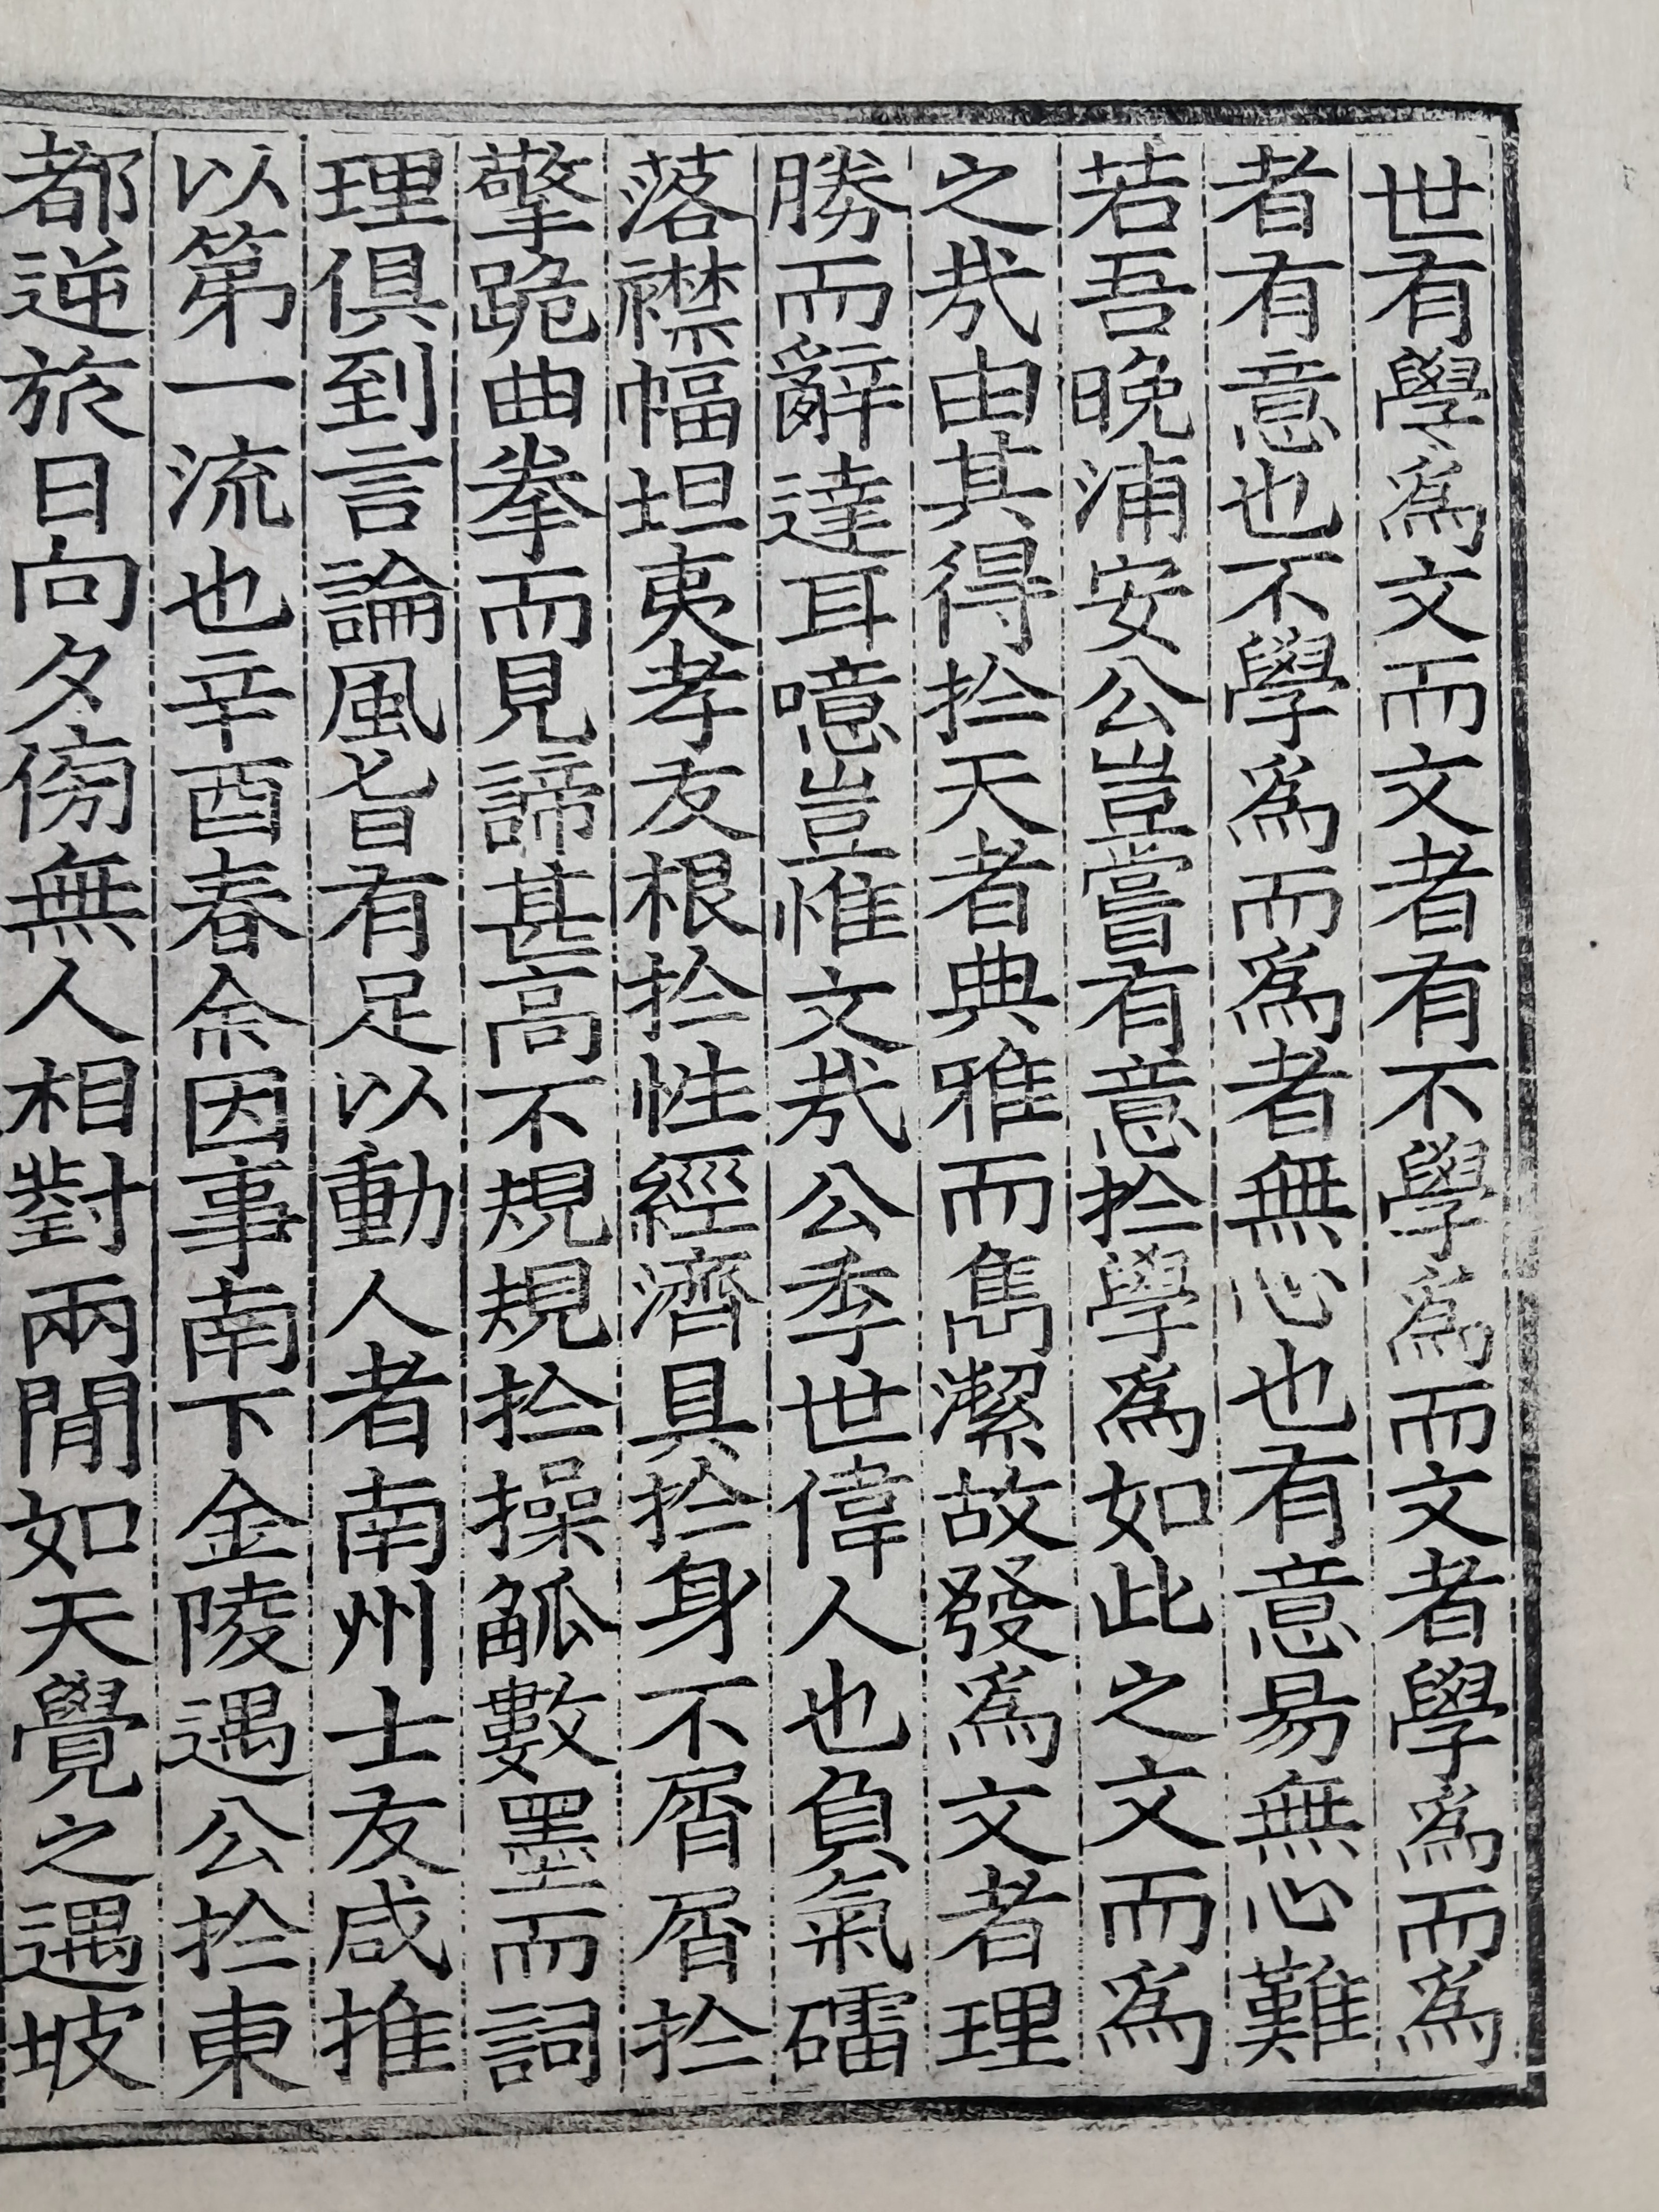 世有學爲文而文者有不學爲而文者學爲而爲
者有意也不學爲而爲者無心也有意易無心難
若吾晩浦安公豈嘗有意扵學爲如此之文而爲
之㦲由其得扵天者典雅而雋潔故發爲文者理
勝而辭達耳噫豈惟文㦲公季世偉人也負氣礌
落襟幅坦夷孝友根扵性經濟具扵身不屑屑扵
擎跪曲拳而見諦甚高不規規扵操觚數墨而詞
理俱到言論風旨有足以動人者南州士友咸推
以第一流也辛酉春余因事南下金陵遇公扵東
都逆旅日向夕傍無人相對兩閒如天覺之遇坡